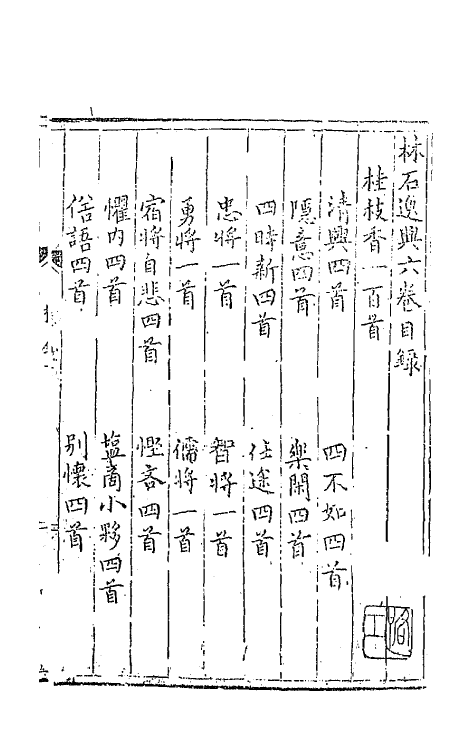 林石逸興六卷目錄
桂枝香一百首
清興四首 四不如四首
隱意四首 樂閑四首
四時新四首 仕途四首
忠將一首 智將一首
勇將一首 儒將一首
宿將自悲四首 慳吝四首
懼内四首 塩商小夥四首
俗語四首 別懷四首